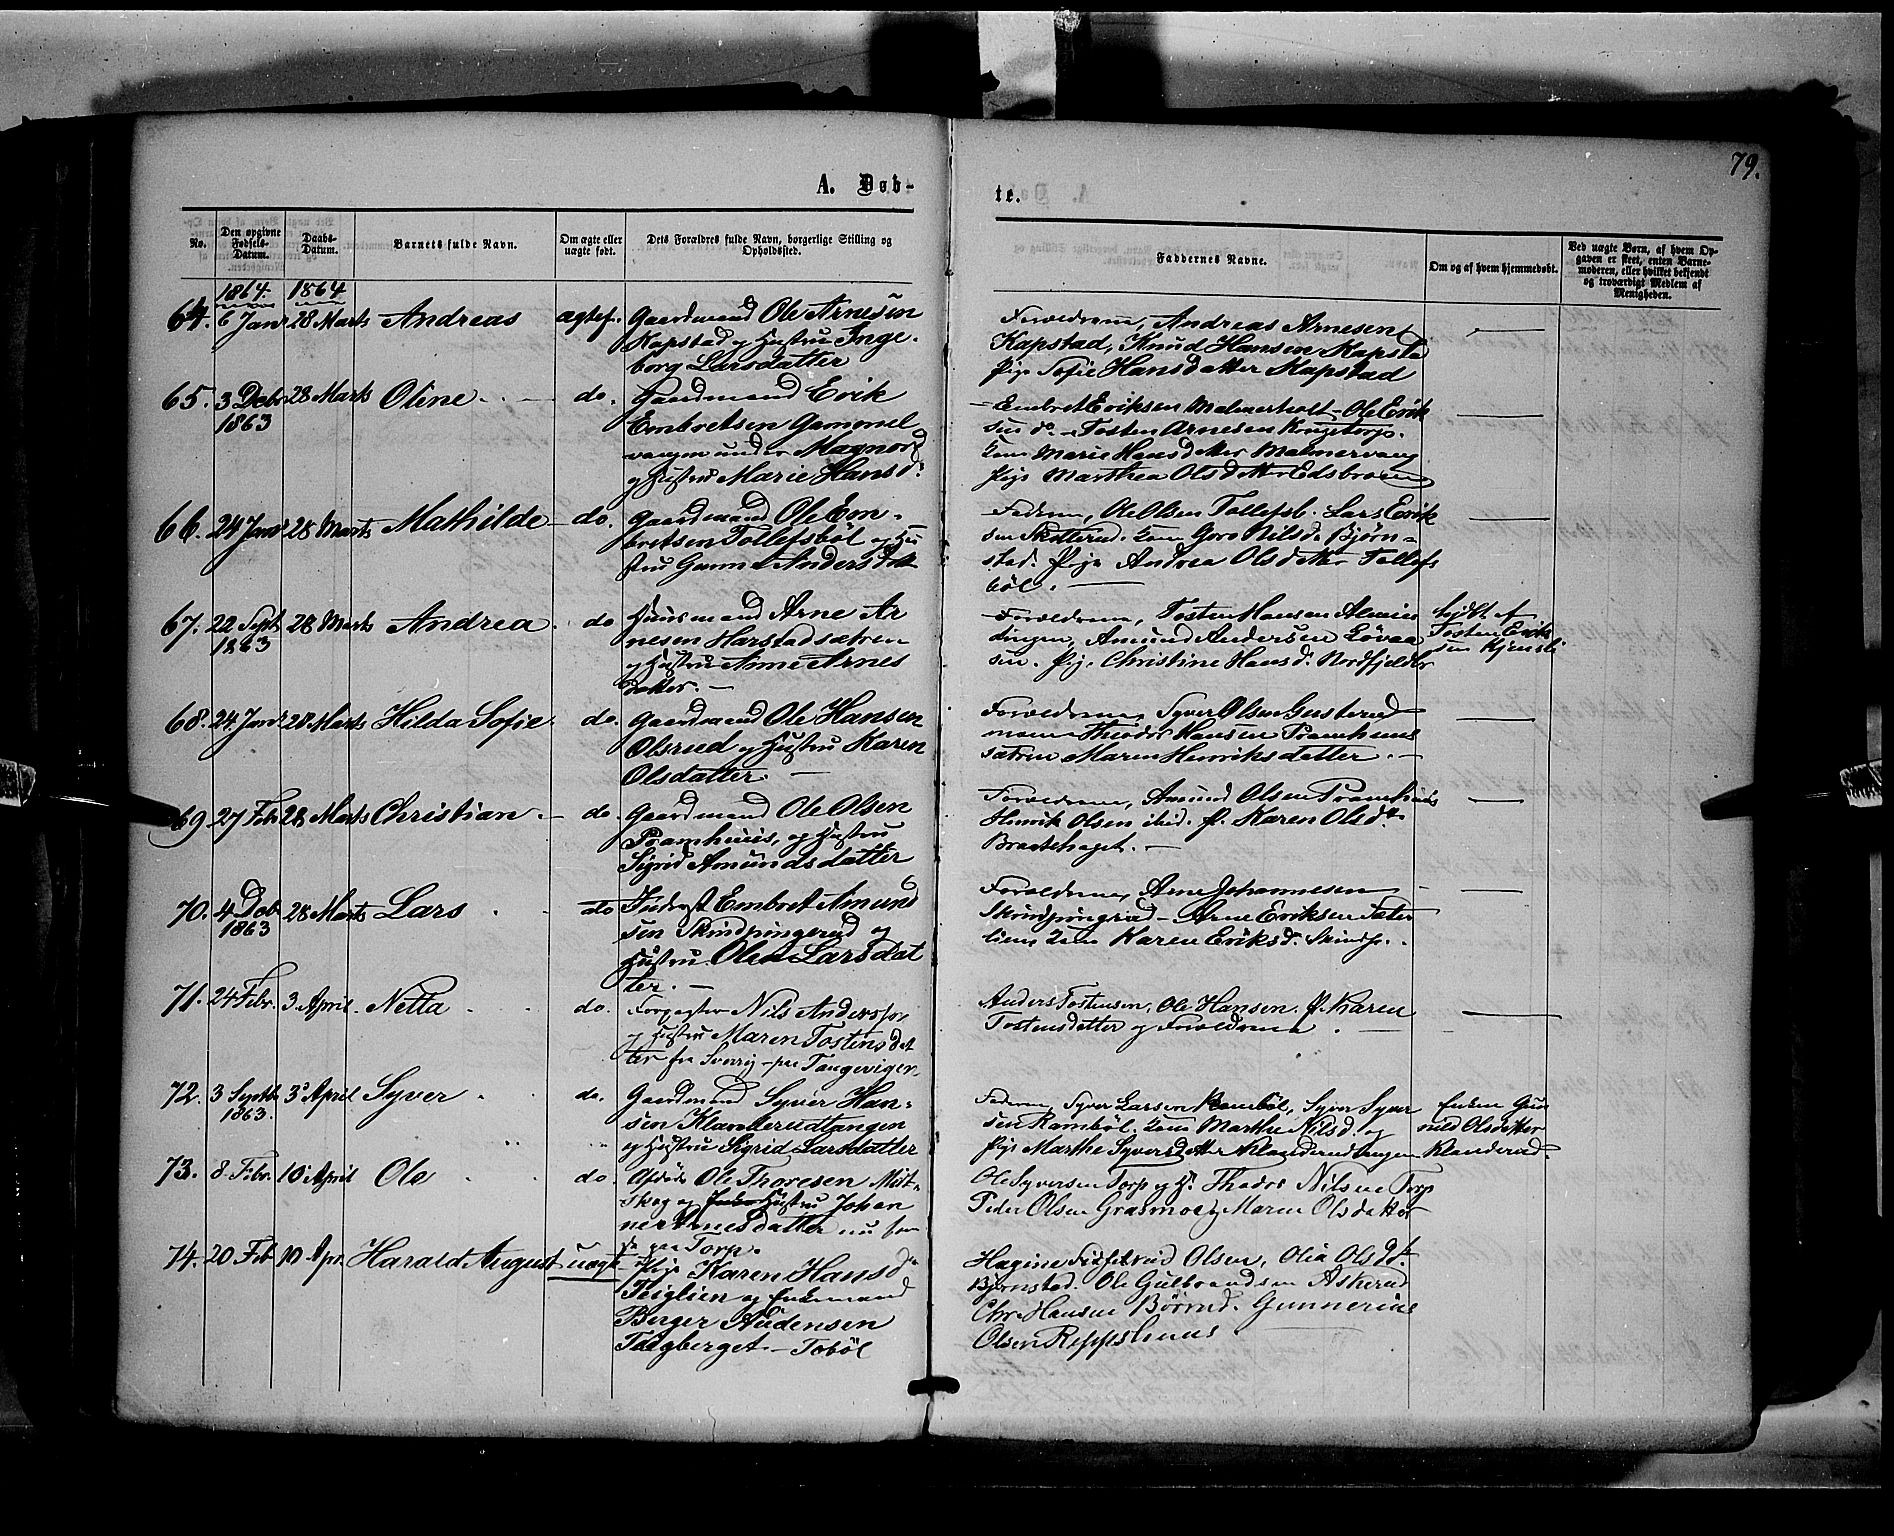 79.
A. Døb-
te.
No.
Den opgivne Fødsels-Datum.
Daabs-Datum.
Barnets fulde Navn.
Om ægte eller uægte født.
Dets Forældres fulde Navn, borgerlige Stilling og Opholdssted.
Faddernes Navne.
Om og af hvem hjemmedøbt.
Ved uægte Børn, af hvem Opgaven er skeet, enten Barnemoderen, eller hvilket bekjendt og troværdigt Medlem af Menigheden.
1864. 1864
64. 6 Janr 28 Marts Andreas ægtef. Gaardmand Ole Arnesen
Kapstad og Hustru Inge-
borg Larsdatter
Forældrene, Andreas Arnesen
Kapstad, Knud Hansen Kapsta
Pige Sofie Hansdatter Kapstad
65. 3 Debr 28 Marts Oline do. Gaardmand Erik
1863
Embretsen Gammel
vangen under Magnor
og Hustru Marie Hansd.
Embret Eriksen Malmerholt - Ole Erik
sen do - Tosten Arnesen Kongetorp.
Kone Marie Hansdatter Malmervang
Pige Marthea Olsdatter Edsbroen
66. 24 Janr 28 Marts Mathilde do. Gaardmand Ole Em-
bretsen Tollefsböl og Hu
stru Gunne Andersdatt
Faderen, Ole Olsen Tollefsb. Lars Erik
sen Skotterud. Kone Goro Nilsd. Bjørn-
stad. Pige Andrea Olsdatter Tollefs
böl.
67. 22 Sept 28 Marts Andrea do Huusmand Arne Ar
1863
nesen Harstadsætren
og Hustru Anne Arnes
datter.
Forældrene, Tosten Hansen
dingen, Amund Andersen Løvaa
sen. Pige Christine Hansd. Nordfjeldet
døbt af
Tosten Erik
sen Kjensli
68. 24 Janr 28 Marts Hilda Sofie do. Gaardmand Ole Hansen
Olsrud og Hustru Karen
Olsdatter.
Forældrene, Syver Olsen Gusterud
moen Theodor Hansen Pramhuus
sætren Maren Henriksdatter.
69 27 Feb 28 Marts Christian do. Gaardmand Ole Olsen
Pramhuus, og Hustru
Sigrid Amundsdatter
Forældrene, Amund Olsen Pramhuus
Henrik Olsen ibid. P. Karen Olsdt.
Braatehaget.
70. 4 Deb 28 Marts Lars do Inderst Embret Amund
1863
sen Skindpungerud og
Hustru Olea Larsdat
ter.
Forældrene, Arne Johannesen
Skindpungrud - Arne Eriksen Sæter
lien Kone Karen Eriksd. Skindp.
71. 24 Febr. 3 April Netta do. Forpagter Nils Anderss.
og Hustru Maren Tostensdat
ter fra Sverrig - paa Tangeviger
Anders Tostensen, Ole Hansen. P. Karen
Tostensdatter og Forældrene.
72. 3 Septbr 3 April Syver do. Gaardmand Syver Han-
1863.
sen Klanderudtangen
og Hustru Sigrid Larsdatter
Faderen, Syver Larsen Ramböl, Syver Syver
sen Ramböl. Kone Marthe Nilsd. og
Pige Marthe Syversdatter Klanderudtangen
Enken Gun
nild Olsdatter
Klanderud.
73. 8 Febr. 10 April Ole do. Afdøde Ole Thoresen Møt-
skog og Hustru Johan
ne Arnesdatter nu for
paa Torp.
Ole Syversen Torp og H. Thodor Nilsen Torp
Peder Olsen Grasmoe, Maren Olsdatter
74. 20 Feb 10 Apr. Harald August uægte Pige Karen Hansd.
Teiglien og Enkemand
Berger Audensen
Taigberget - Toböl
Hagine Olsen, Olia Olsdt.
Bjørnstad. Ole Gulbrandsen Askerud
Chr. Hansen Børrud. Gunnerius
Olsen Reppshuus.